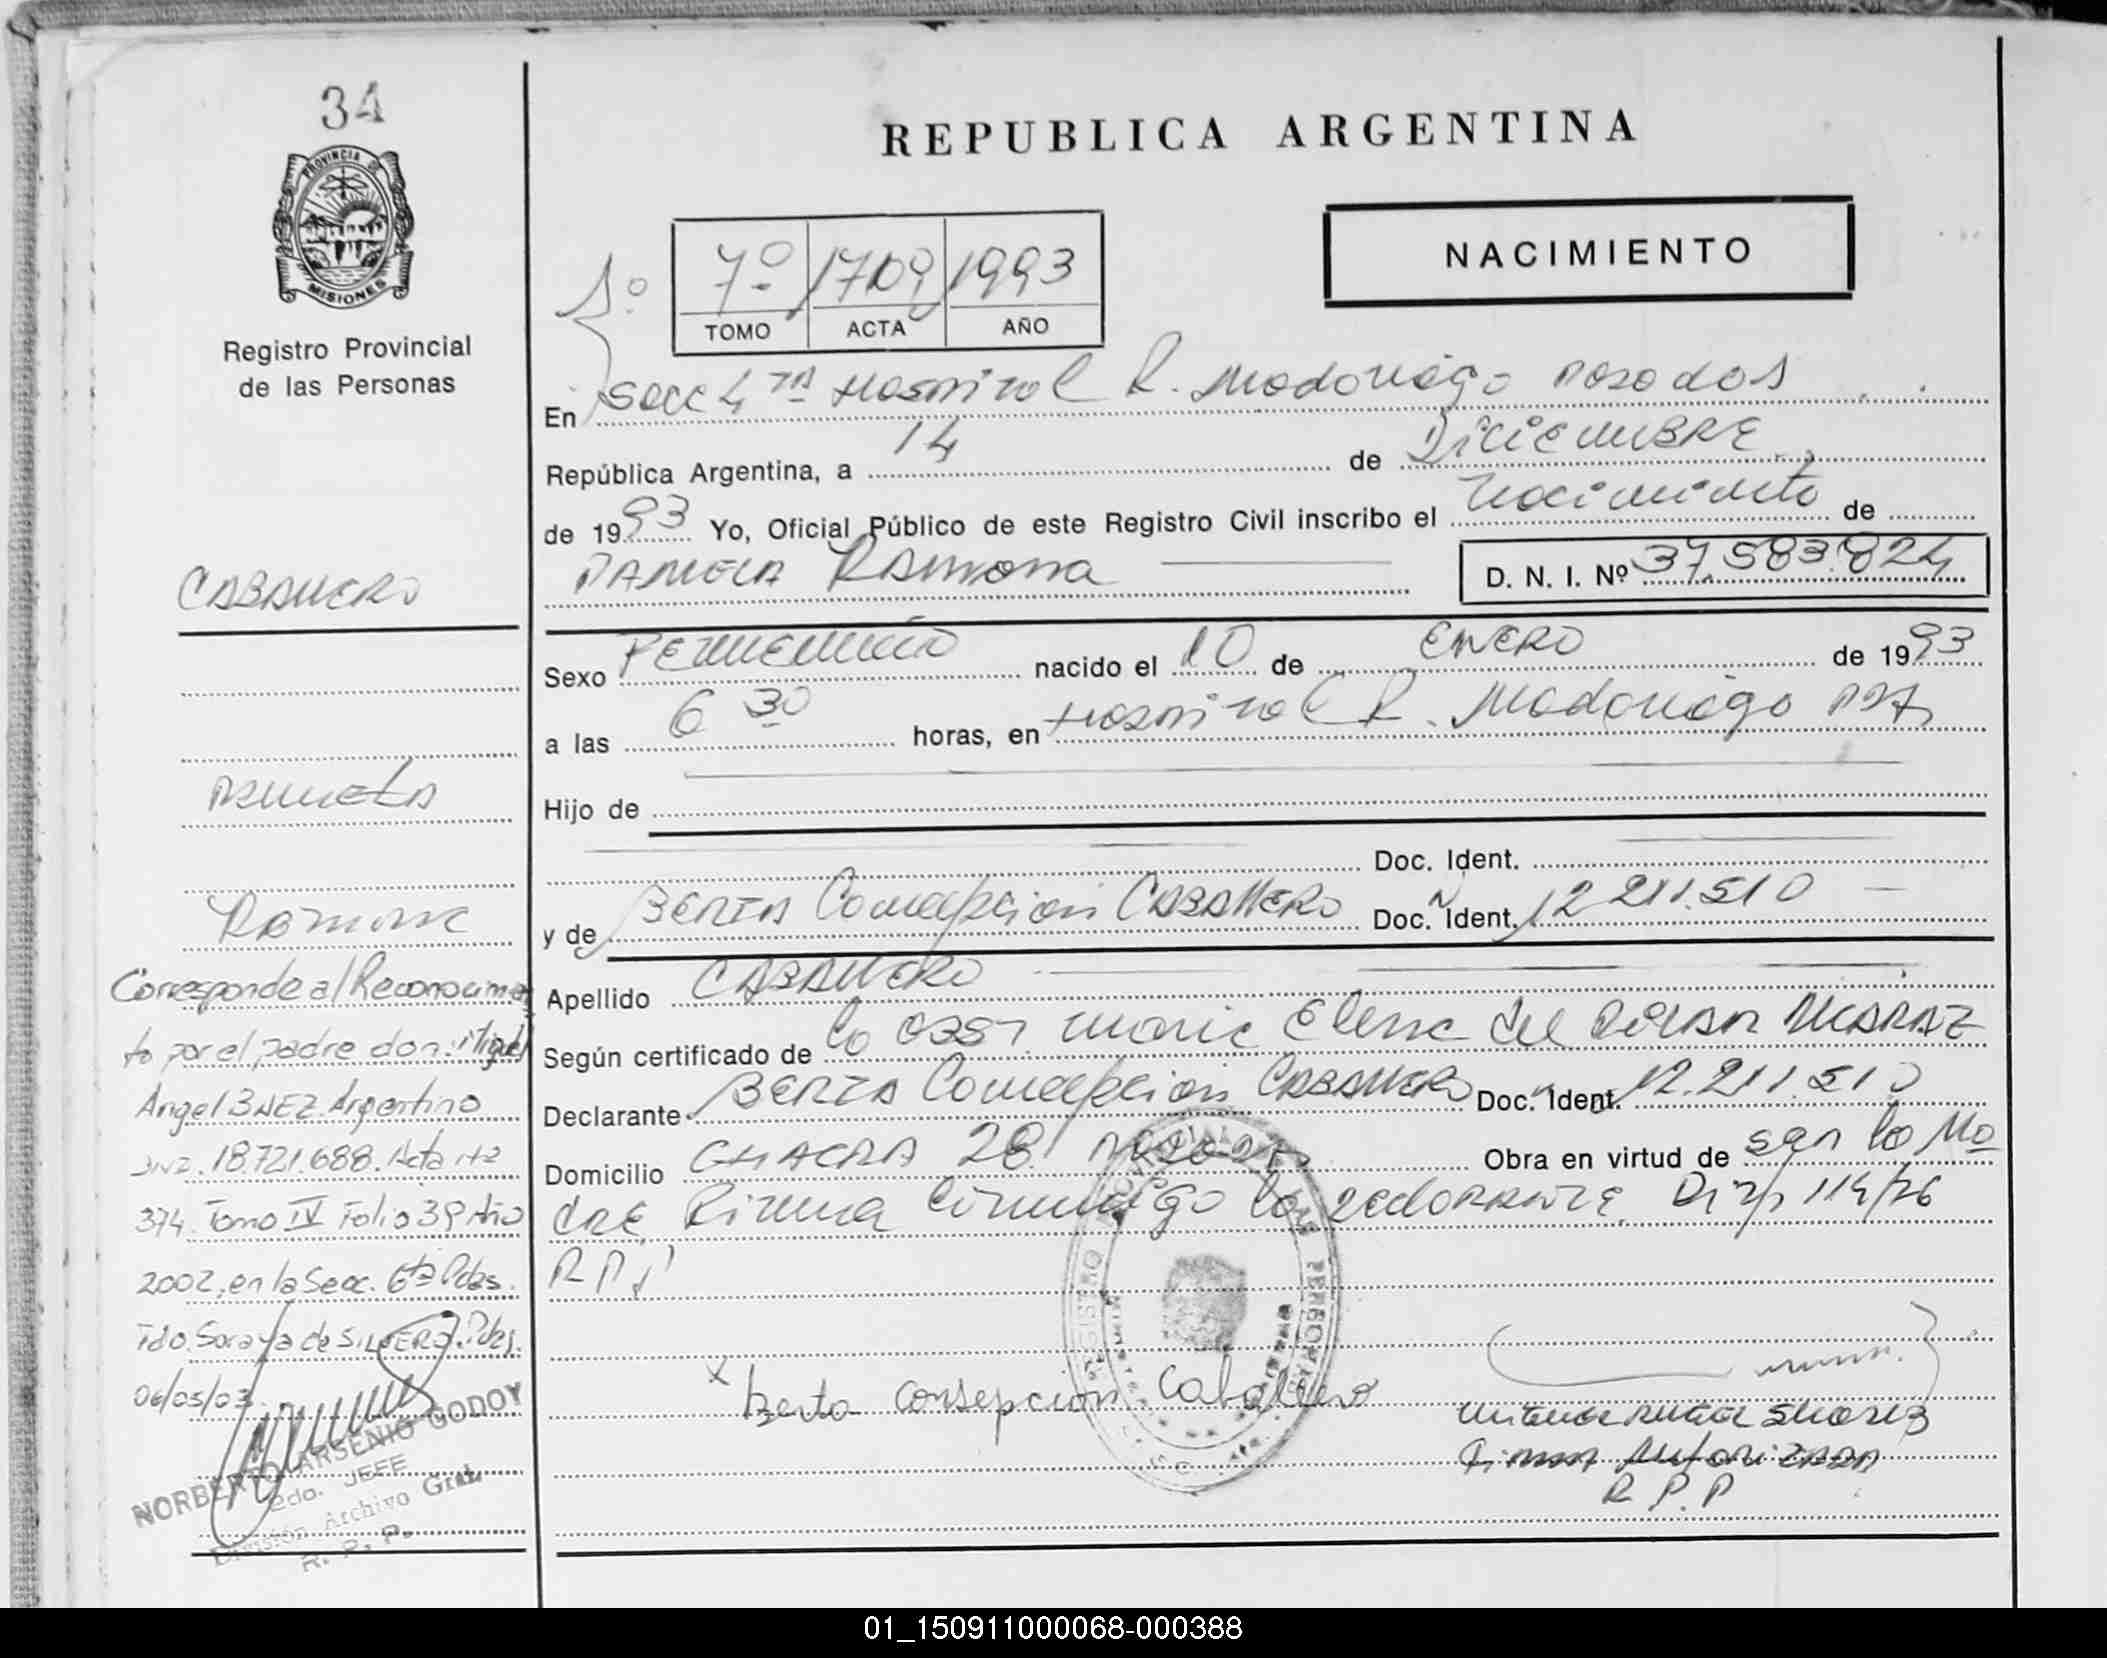 34
PROVINCIA DE
MISIONES
Registro Provincial
de las Personas
REPUBLICA ARGENTINA
NACIMIENTO
1º
7º 1709 1993
TOMO ACTA AÑO
En Secc 4ta Hospital R. Madariaga Posadas
República Argentina, a 14 de Diciembre
de 1993 Yo, Oficial Público de este Registro Civil inscribo el Nacimiento de
PAMELA Ramona D. N. I. Nº 37.583.824
Sexo Femenino nacido el 10 de ENERO de 1993
a las 6 30 horas, en Hospital R. Madariaga Pdas
Hijo de
Doc. Ident.
y de BERTA Concepcion CABALLERO Doc. Ident. 12.211.510
Apellido CABALLERO
Según certificado de la Obst Maria Elena del Pilar ALCARAZ
Declarante BERTA Concepcion CABALLERO Doc. Ident. 12.211.510
Domicilio CHACRA 28 Posadas Obra en virtud de ser la Ma
dre Firma conmigo la declarante Disp 114/76
R P P
x berta consepcion Caballero
Firma Autorizada
R. P. P
CABALLERO
Pamela
Ramona
Corresponde al Reconocimien
to por el padre don: Miguel
Angel BAEZ Argentino
DNI. 18.721.688. Acta nº
374. Tomo IV Folio 39 Año
2002, en la Secc. 6ta Pdas.
Fdo. Soraya de SILVERO. Pdas.
06/05/03
NORBERTO ARSENIO GODOY
2do. JEFE
División Archivo Gral.
R. P. P.
01_150911000068-000388